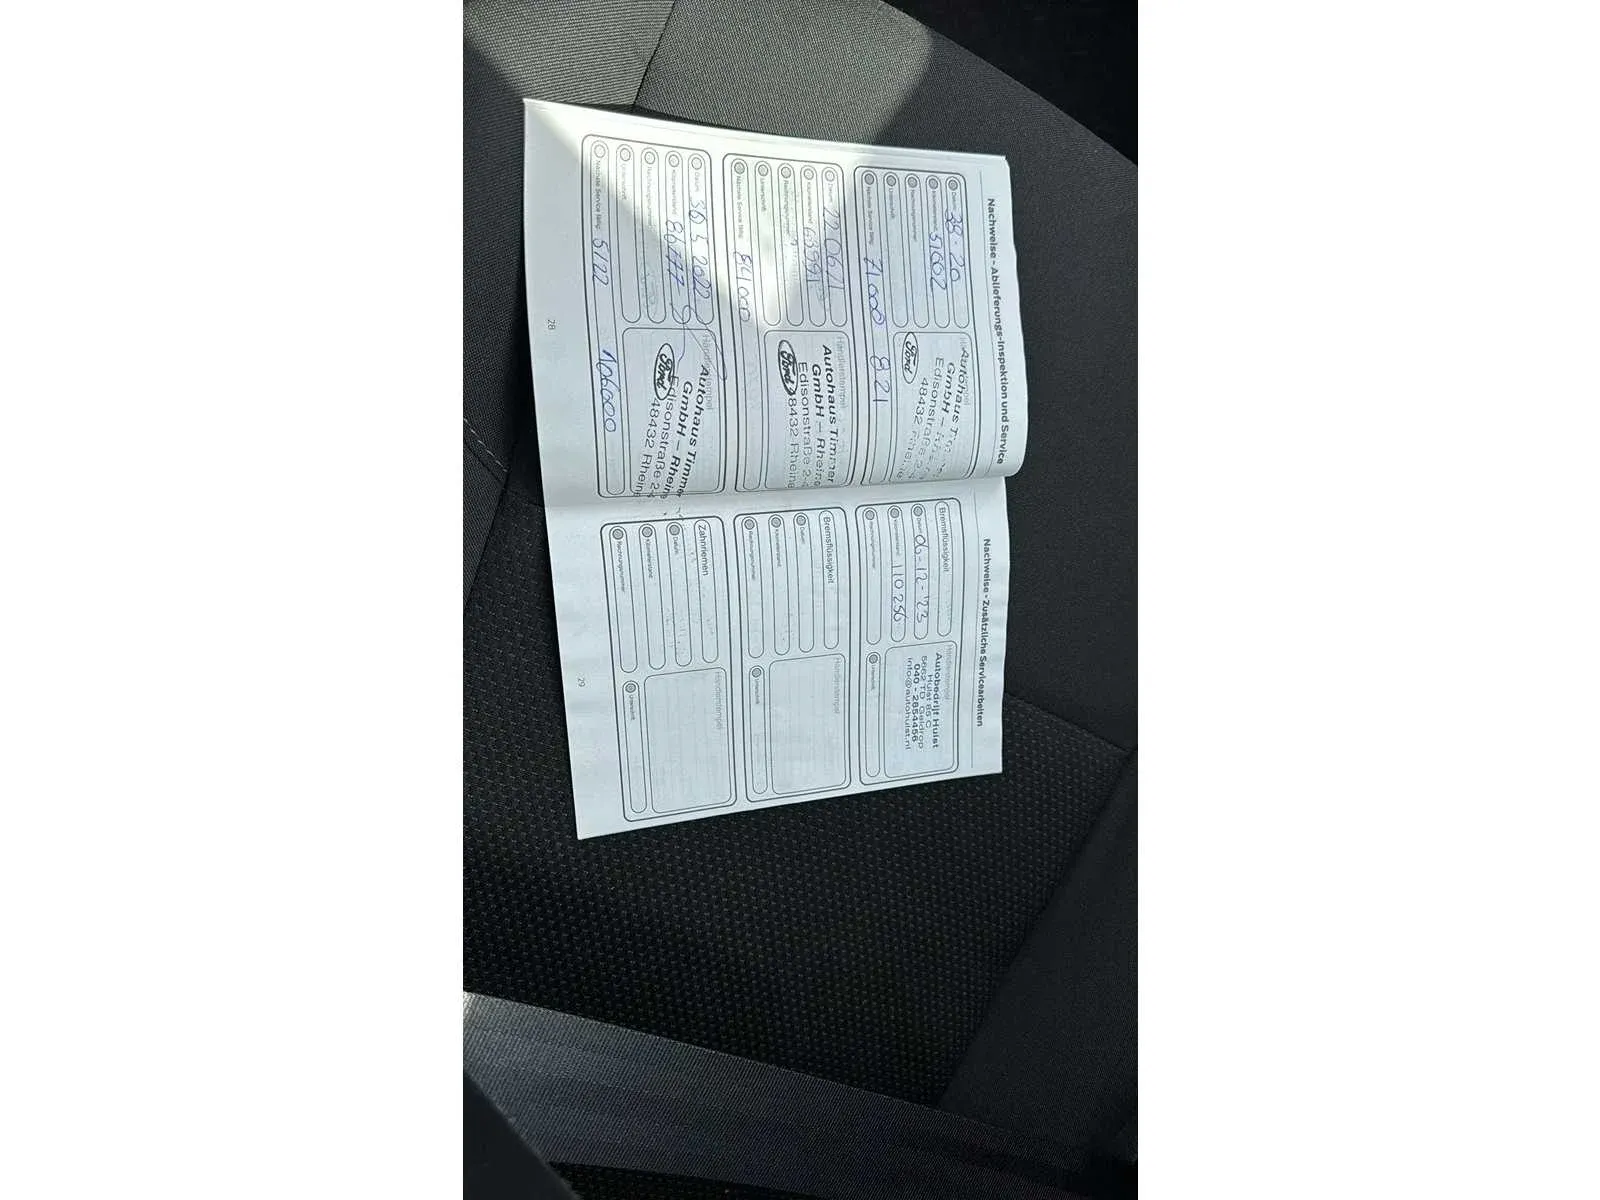 Nachweise - Ablieferungs-Inspektion und Service
Datum:
Kilometerstand: 51662
Rechnungsnummer:
Unterschrift:
Nächste Service fällig: 71.000 8.21
Autohaus
GmbH –
Edisonstraße
48432
Ford
Datum: 22.06.21
Kilometerstand:
Rechnungsnummer:
Unterschrift:
Nächste Service fällig: 84.000
Händlerstempel
Autohaus Timmer
GmbH – Rheine
Edisonstraße 2-4
48432 Rheine
Ford
Datum: 30.5.2022
Kilometerstand: 86777
Rechnungsnummer:
Unterschrift:
Nächste Service fällig: 5/22 106000
Händlerstempel
Autohaus Timmer
GmbH – Rheine
Edisonstraße 2-4
48432 Rheine
Ford
28
Nachweise - Zusätzliche Servicearbeiten
Bremsflüssigkeit
Datum: 06-12-'23
Kilometerstand: 110256
Rechnungsnummer:
Händlerstempel
Autobedrijf Hulst
Hulst 85 C
5662 TD Geldrop
040 - 2854456
info@autohulst.nl
Unterschrift:
Bremsflüssigkeit
Datum:
Kilometerstand:
Rechnungsnummer:
Händlerstempel
Unterschrift:
Zahnriemen
Datum:
Kilometerstand:
Rechnungsnummer:
Händlerstempel
Unterschrift:
29